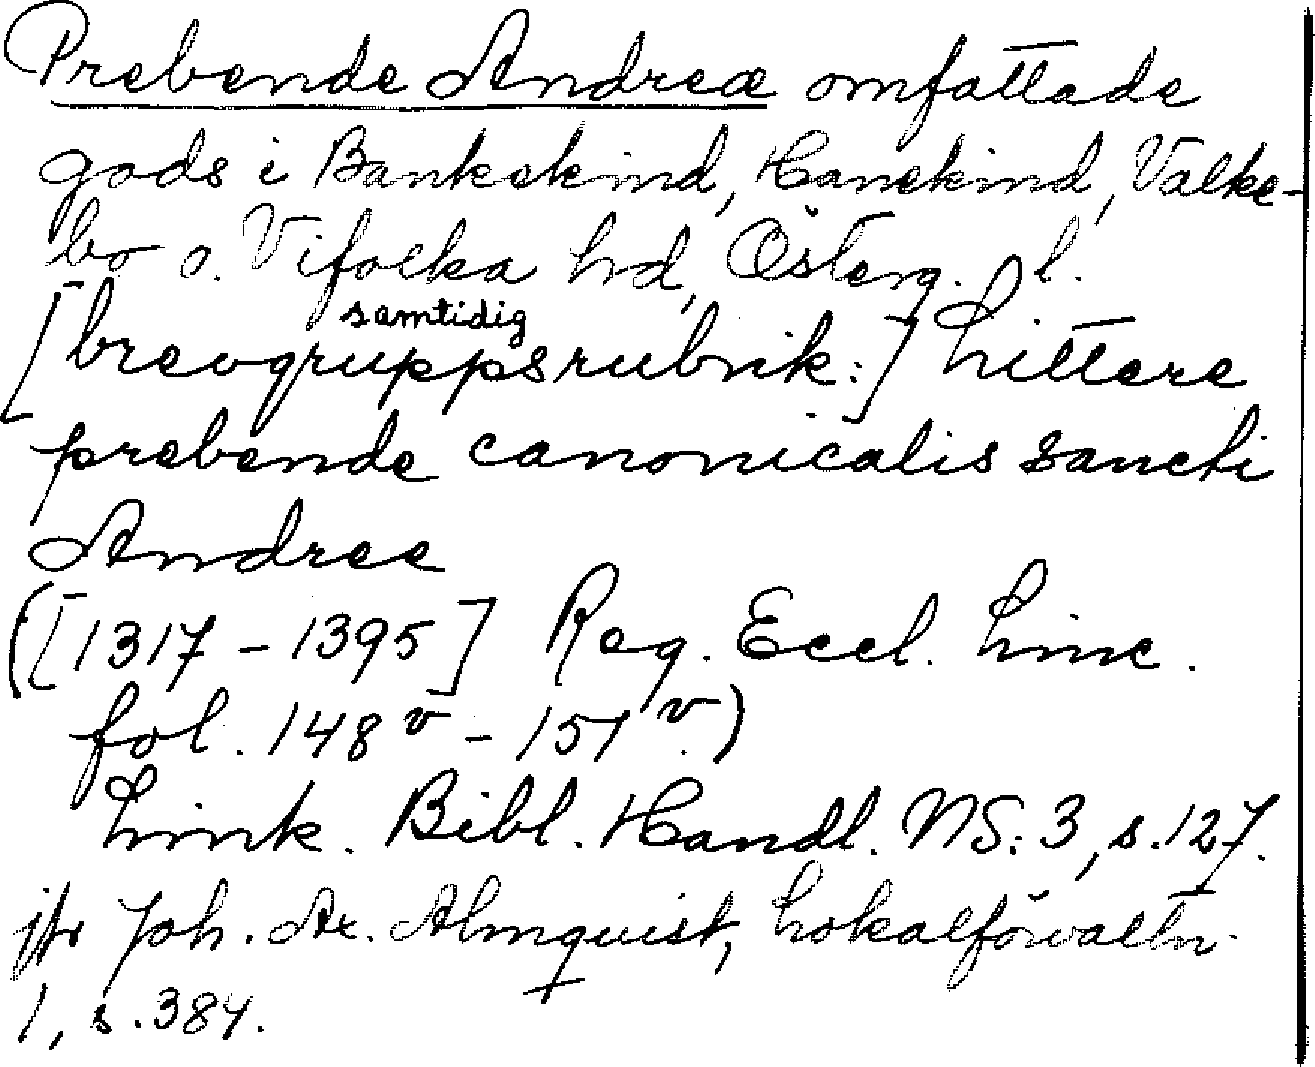 Prebende Andreæ omfattade
gods i Bankekind, Hanekind, Valke-
bo o. Vifolka hrd, Österg. l.
samtidig
[brevgruppsrubrik:] Littere
prebende canonicalis sancti
Andree
([1317-1395] Reg. Eccl. Linc.
fol. 148v - 151v.)
Link. Bibl. Handl. NS: 3, s. 127.
jfr Joh. Ax. Almquist, Lokalförvaltn.
1, s. 384.